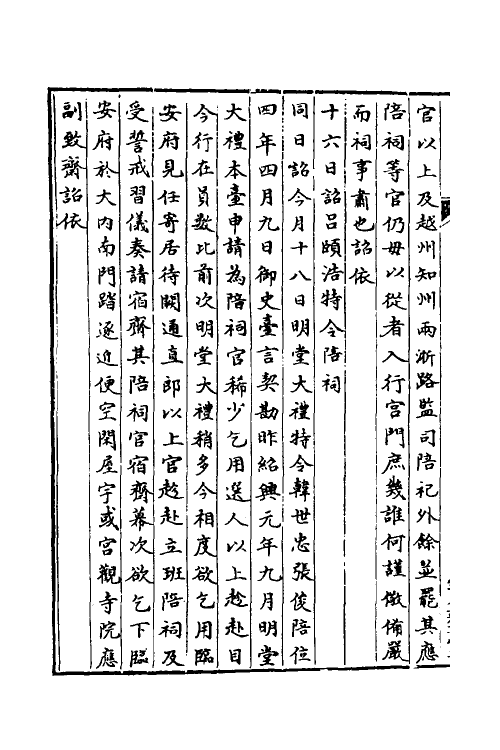 官以上及越州知州兩浙路監司陪祀外餘並罷其應
陪祠等官仍毋以從者入行宮門庶幾誰何謹儆備嚴
而祠事肅也詔依
十六日詔呂頤浩特令陪祠
同日詔今月十八日明堂大禮特令韓世忠張俊陪位
四年四月九日御史臺言契勘昨紹興元年九月明堂
大禮本臺申請為陪祠官稀少乞用選人以上趁赴目
今行在員數比前次明堂大禮稍多今相度欲乞用臨
安府見任寄居待闕通直郎以上官趁赴立班陪祠及
受誓戒習儀奏請宿齋其陪祠官宿齋幕次欲乞下臨
安府於大內南門踏逐近便空閑屋宇或宮觀寺院應
副致齋詔依